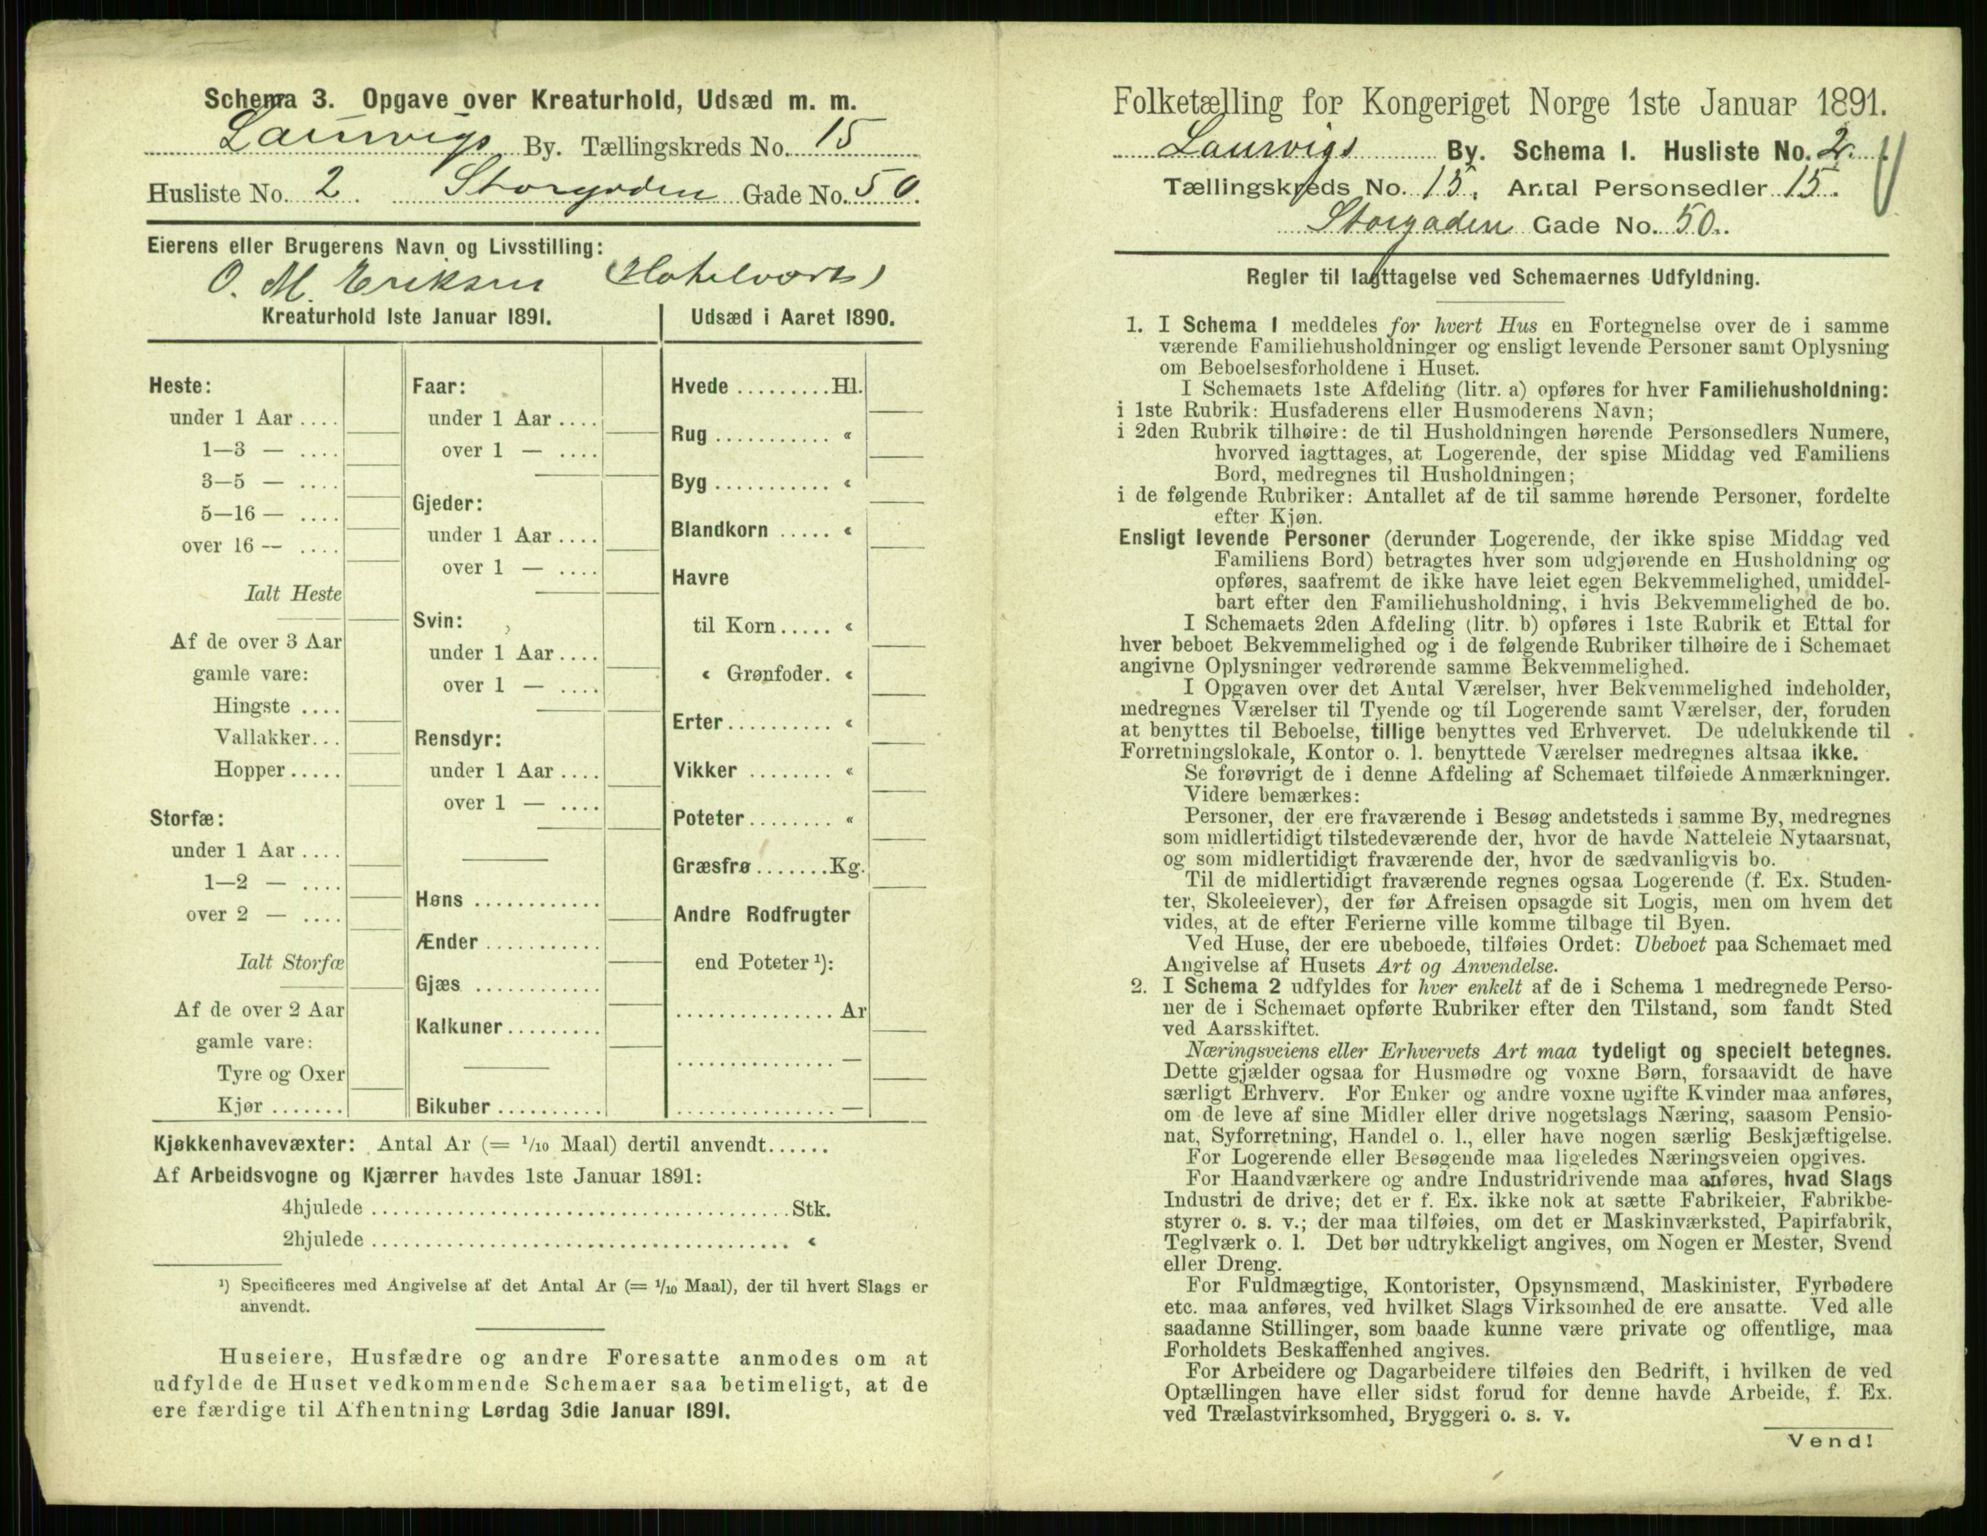 Schema 3. Opgave over Kreaturhold, Udsæd m. m.
Laurvigs By. Tællingskreds No. 15
Husliste No. 2. Storgaden Gade No. 50.
Eierens eller Brugerens Navn og Livsstilling:
O. M. Eriksen (Hotelvært)
Kreaturhold 1ste Januar 1891.
Heste:
under 1 Aar ....
1—3 — ....
3—5 — ....
5—16 — ....
over 16 — ....
Ialt Heste
Af de over 3 Aar
gamle vare:
Hingste ....
Vallakker...
Hopper.....
Storfæ:
under 1 Aar ....
1—2 — ....
over 2 — ....
Ialt Storfæ
Af de over 2 Aar
gamle vare:
Tyre og Oxer
Kjør .......
Faar:
under 1 Aar ....
over 1 — ....
Gjeder:
under 1 Aar ....
over 1 — ....
Svin:
under 1 Aar ....
over 1 — ....
Rensdyr:
under 1 Aar ....
over 1 — ....
Høns ............
Ænder ...........
Gjæs ............
Kalkuner.........
Bikuber ..........
Udsæd i Aaret 1890.
Hvede .........Hl.
Rug ........... «
Byg ........... «
Blandkorn ..... «
Havre
til Korn..... «
« Grønfoder. «
Erter.......... «
Vikker ........ «
Poteter........ «
Græsfrø.......Kg.
Andre Rodfrugter
end Poteter ¹):
............... Ar
............... —
............... —
Kjøkkenhavevæxter: Antal Ar (= 1/10 Maal) dertil anvendt......
Af Arbeidsvogne og Kjærrer havdes 1ste Januar 1891:
4hjulede ....................................... Stk.
2hjulede ....................................... «
¹) Specificeres med Angivelse af det Antal Ar (= 1/10 Maal), der til hvert Slags er
anvendt.
Huseiere, Husfædre og andre Foresatte anmodes om at
udfylde de Huset vedkommende Schemaer saa betimeligt, at de
ere færdige til Afhentning Lørdag 3die Januar 1891.
Folketælling for Kongeriget Norge 1ste Januar 1891.
Laurvigs By. Schema I. Husliste No. 2.
Tællingskreds No. 15. Antal Personsedler 15.
Storgaden Gade No. 50.
Regler til Iagttagelse ved Schemaernes Udfyldning.
1. I Schema 1 meddeles for hvert Hus en Fortegnelse over de i samme
værende Familiehusholdninger og ensligt levende Personer samt Oplysning
om Beboelsesforholdene i Huset.
I Schemaets 1ste Afdeling (litr. a) opføres for hver Familiehusholdning:
i 1ste Rubrik: Husfaderens eller Husmoderens Navn;
i 2den Rubrik tilhøire: de til Husholdningen hørende Personsedlers Numere,
hvorved iagttages, at Logerende, der spise Middag ved Familiens
Bord, medregnes til Husholdningen;
i de følgende Rubriker: Antallet af de til samme hørende Personer, fordelte
efter Kjøn.
Ensligt levende Personer (derunder Logerende, der ikke spise Middag ved
Familiens Bord) betragtes hver som udgjørende en Husholdning og
opføres, saafremt de ikke have leiet egen Bekvemmelighed, umiddel-
bart efter den Familiehusholdning, i hvis Bekvemmelighed de bo.
I Schemaets 2den Afdeling (litr. b) opføres i 1ste Rubrik et Ettal for
hver beboet Bekvemmelighed og i de følgende Rubriker tilhøire de i Schemaet
angivne Oplysninger vedrørende samme Bekvemmelighed.
I Opgaven over det Antal Værelser, hver Bekvemmelighed indeholder,
medregnes Værelser til Tyende og til Logerende samt Værelser, der, foruden
at benyttes til Beboelse, tillige benyttes ved Erhvervet. De udelukkende til
Forretningslokale, Kontor o. l. benyttede Værelser medregnes altsaa ikke.
Se forøvrigt de i denne Afdeling af Schemaet tilføiede Anmærkninger.
Videre bemærkes:
Personer, der ere fraværende i Besøg andetsteds i samme By, medregnes
som midlertidigt tilstedeværende der, hvor de havde Natteleie Nytaarsnat,
og som midlertidigt fraværende der, hvor de sædvanligvis bo.
Til de midlertidigt fraværende regnes ogsaa Logerende (f. Ex. Studen-
ter, Skoleelever), der før Afreisen opsagde sit Logis, men om hvem det
vides, at de efter Ferierne ville komme tilbage til Byen.
Ved Huse, der ere ubeboede, tilføies Ordet: Ubeboet paa Schemaet med
Angivelse af Husets Art og Anvendelse.
2. I Schema 2 udfyldes for hver enkelt af de i Schema 1 medregnede Perso-
ner de i Schemaet opførte Rubriker efter den Tilstand, som fandt Sted
ved Aarsskiftet.
Næringsveiens eller Erhvervets Art maa tydeligt og specielt betegnes.
Dette gjælder ogsaa for Husmødre og voxne Børn, forsaavidt de have
særligt Erhverv. For Enker og andre voxne ugifte Kvinder maa anføres,
om de leve af sine Midler eller drive nogetslags Næring, saasom Pensio-
nat, Syforretning, Handel o. l., eller have nogen særlig Beskjæftigelse.
For Logerende eller Besøgende maa ligeledes Næringsveien opgives.
For Haandværkere og andre Industridrivende maa anføres, hvad Slags
Industri de drive; det er f. Ex. ikke nok at sætte Fabrikeier, Fabrikbe-
styrer o. s. v.; der maa tilføies, om det er Maskinværksted, Papirfabrik,
Teglværk o. l. Det bør udtrykkeligt angives, om Nogen er Mester, Svend
eller Dreng.
For Fuldmægtige, Kontorister, Opsynsmænd, Maskinister, Fyrbødere
etc. maa anføres, ved hvilket Slags Virksomhed de ere ansatte. Ved alle
saadanne Stillinger, som baade kunne være private og offentlige, maa
Forholdets Beskaffenhed angives.
For Arbeidere og Dagarbeidere tilføies den Bedrift, i hvilken de ved
Optællingen have eller sidst forud for denne havde Arbeide, f. Ex.
ved Trælastvirksomhed, Bryggeri o. s. v.
Vend!